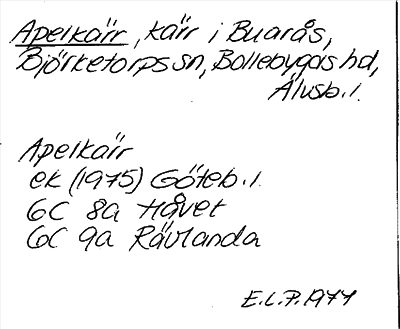 Apelkärr, kärr i Buarås,
Björketorps sn, Bollebygds hd,
Älvsb. l.
Apelkärr
ek (1975) Göteb. l.
6C 8a Håvet
6C 9a Rävlanda
E.L.P. 1977